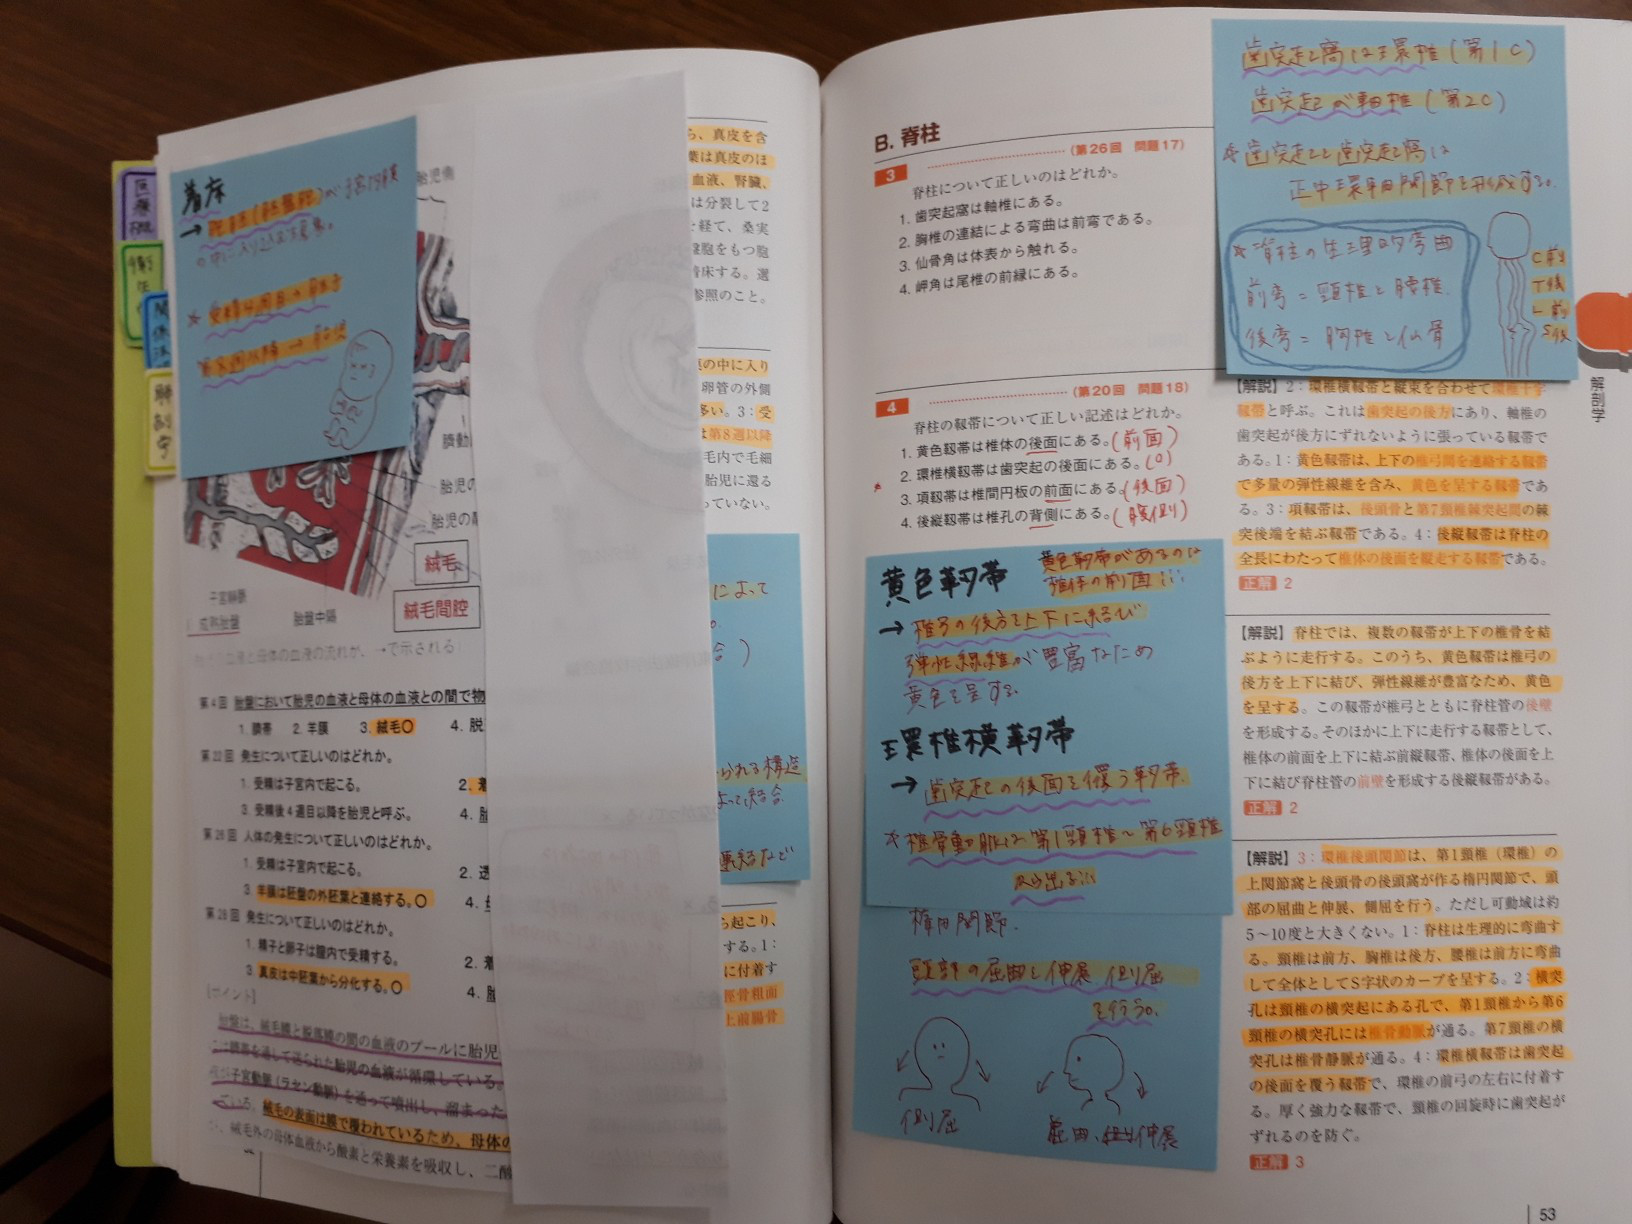 着床
→ 胚盤胞)が子宮内膜
の中に入り込む現象。
胎児
胎児
臍動
胎児の
胎児の
絨毛
絨毛間腔
子宮静脈
成熟胎盤
胎盤中隔
第4回 胎盤において胎児の血液と母体の血液との間で物
1. 臍帯 2. 羊膜 3. 絨毛○ 4. 脱
第22回 発生について正しいのはどれか。
1. 受精は子宮内で起こる。 2. 着
3. 受精後4週目以降を胎児と呼ぶ。 4. 胎
第25回 人体の発生について正しいのはどれか。
1. 受精は子宮内で起こる。 2. 透
3. 羊膜は胚盤の外胚葉と連絡する。○ 4.
第28回 発生について正しいのはどれか。
1. 精子と卵子は腟内で受精する。 2. 着
3. 真皮は中胚葉から分化する。○ 4. 胎
[ポイント]
胎盤は、絨毛膜と脱落膜の間の血液のプールに胎児
を通して送られた胎児の血液が循環している。
子宮動脈(ラセン動脈)を通って噴出し、溜まった
ている。絨毛の表面は膜で覆われているため、母体の
絨毛外の母体血液から酸素と栄養素を吸収し、二酸
ら、真皮を含
葉は真皮のほ
血液、腎臓、
は分裂して2
経て、桑実
盤胞をもつ胞
着床する。選
参照のこと。
の中に入り
卵管の外側
多い。3:受
は第8週以降
毛内で毛細
胎児に還る
っていない。
によって
合)
られる構造
よって結合
連結などで
ら起こり、
する。1:
に付着す
脛骨粗面
上前腸骨
B. 脊柱
3 (第26回 問題17)
脊柱について正しいのはどれか。
1. 歯突起窩は軸椎にある。
2. 胸椎の連結による弯曲は前弯である。
3. 仙骨角は体表から触れる。
4. 岬角は尾椎の前縁にある。
4 (第20回 問題18)
脊柱の靱帯について正しい記述はどれか。
1. 黄色靱帯は椎体の後面にある。(前面)
2. 環椎横靱帯は歯突起の後面にある。(○)
3. 項靱帯は椎間円板の前面にある。(後面)
4. 後縦靱帯は椎孔の背側にある。(腹側)
黄色靭帯 黄色靭帯があるのは
椎体の前面!!
→ 椎弓の後方を上下に結び
弾性線維が豊富なため
黄色を呈する。
環椎横靭帯
→ 歯突起の後面を覆う靭帯。
☆椎骨動脈は第1頸椎〜第6頸椎
から出る!!
楕円関節。
頭部の屈曲と伸展、側屈
を行う。
側屈
屈曲、伸展
歯突起窩は環椎(第1C)
歯突起が軸椎(第2C)
☆歯突起と歯突起窩は
正中環軸関節を形成する。
☆脊柱の生理的弯曲
前弯=頸椎と腰椎
後弯=胸椎と仙骨
C前
T後
L前
S後
解剖学
【解説】2:環椎横靱帯と縦束を合わせて環椎十字
靱帯と呼ぶ。これは歯突起の後方にあり、軸椎の
歯突起が後方にずれないように張っている靱帯で
ある。1:黄色靱帯は、上下の椎弓間を連絡する靱帯
で多量の弾性線維を含み、黄色を呈する靱帯であ
る。3:項靱帯は、後頭骨と第7頸椎棘突起間の棘
突後端を結ぶ靱帯である。4:後縦靱帯は脊柱の
全長にわたって椎体の後面を縦走する靱帯である。
正解 2
【解説】脊柱では、複数の靱帯が上下の椎骨を結
ぶように走行する。このうち、黄色靱帯は椎弓の
後方を上下に結び、弾性線維が豊富なため、黄色
を呈する。この靱帯が椎弓とともに脊柱管の後壁
を形成する。そのほかに上下に走行する靱帯として、
椎体の前面を上下に結ぶ前縦靱帯、椎体の後面を上
下に結び脊柱管の前壁を形成する後縦靱帯がある。
正解 2
【解説】3:環椎後頭関節は、第1頸椎(環椎)の
上関節窩と後頭骨の後頭窩が作る楕円関節で、頭
部の屈曲と伸展、側屈を行う。ただし可動域は約
5〜10度と大きくない。1:脊柱は生理的に弯曲す
る。頸椎は前方、胸椎は後方、腰椎は前方に弯曲
して全体としてS字状のカーブを呈する。2:横突
孔は頸椎の横突起にある孔で、第1頸椎から第6
頸椎の横突孔には椎骨動脈が通る。第7頸椎の横
突孔は椎骨静脈が通る。4:環椎横靱帯は歯突起
の後面を覆う靱帯で、環椎の前弓の左右に付着す
る。厚く強力な靱帯で、頸椎の回旋時に歯突起が
ずれるのを防ぐ。
正解 3
53